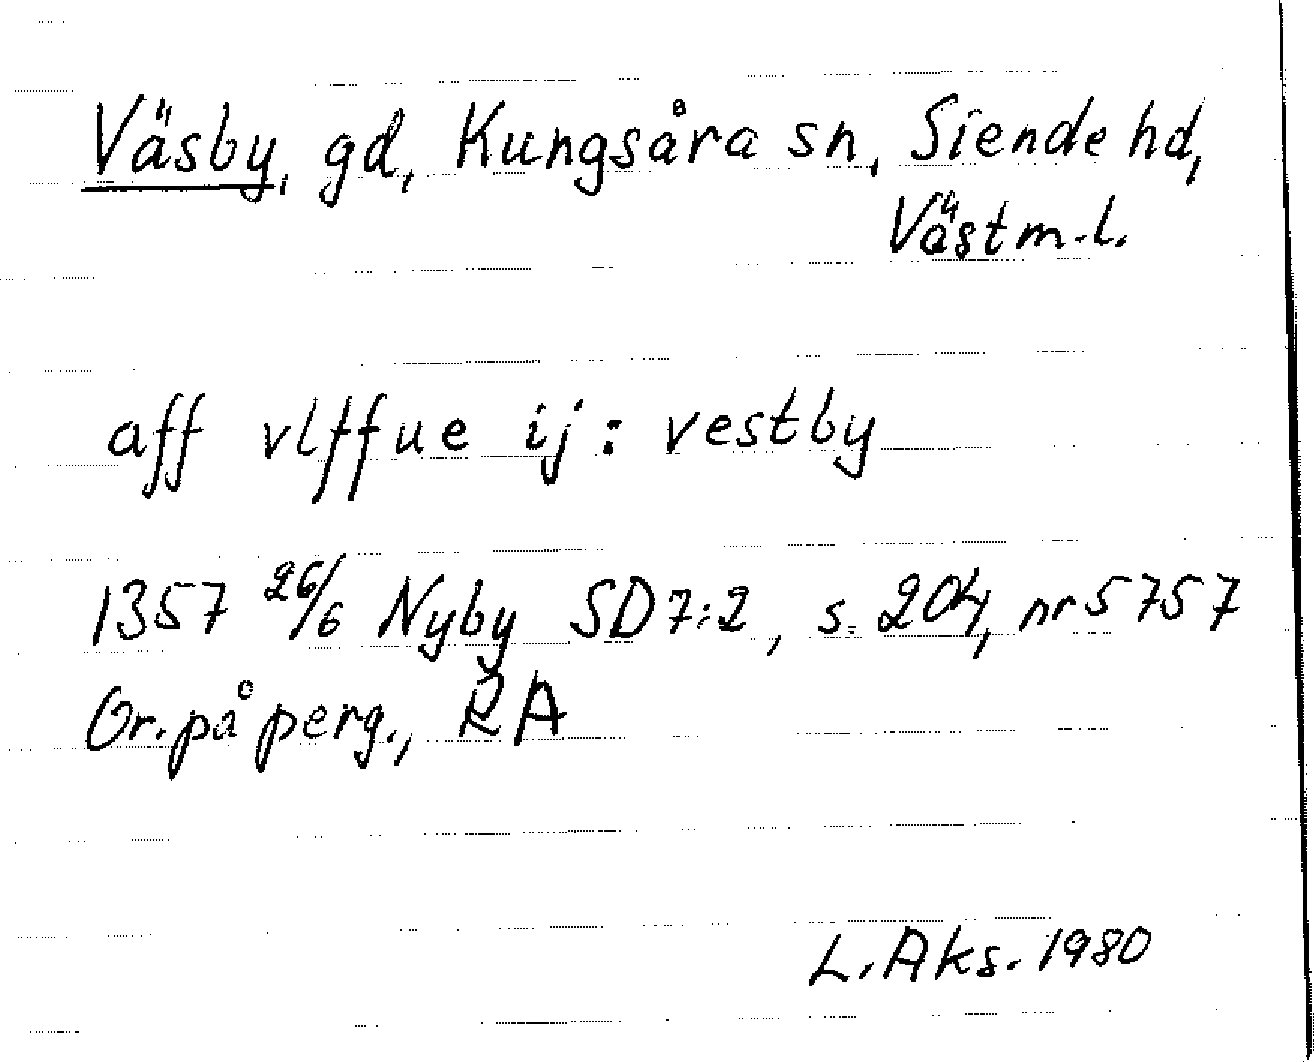 Väsby, gd, Kungsåra sn, Siende hd,
Västm.l.
aff vlffue ij: vestby
1357 26/6 Nyby SD 7:2, s. 204, nr 5757
Or. på perg., RA
L. Aks. 1980